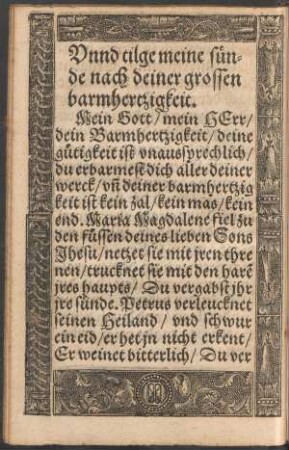 Vnnd tilge meine sün-
de nach deiner grossen
barmhertzigkeit.
Mein Gott/mein HErr/
dein Barmhertzigkeit/deine
gütigkeit ist vnaussprechlich/
du erbarmest dich aller deiner
werck/vñ deiner barmhertzig
keit ist kein zal/kein mas/kein
end. Maria Magdalene fiel zu
den füssen deines lieben Sons
Jhesu/netzet sie mit jren thre
nen/trucknet sie mit den harē
jres haupts/Du vergabst jhr
jre sünde. Petrus verleucknet
seinen Heiland/vnd schwur
ein eid/er het jn nicht erkent/
Er weinet bitterlich/Du ver